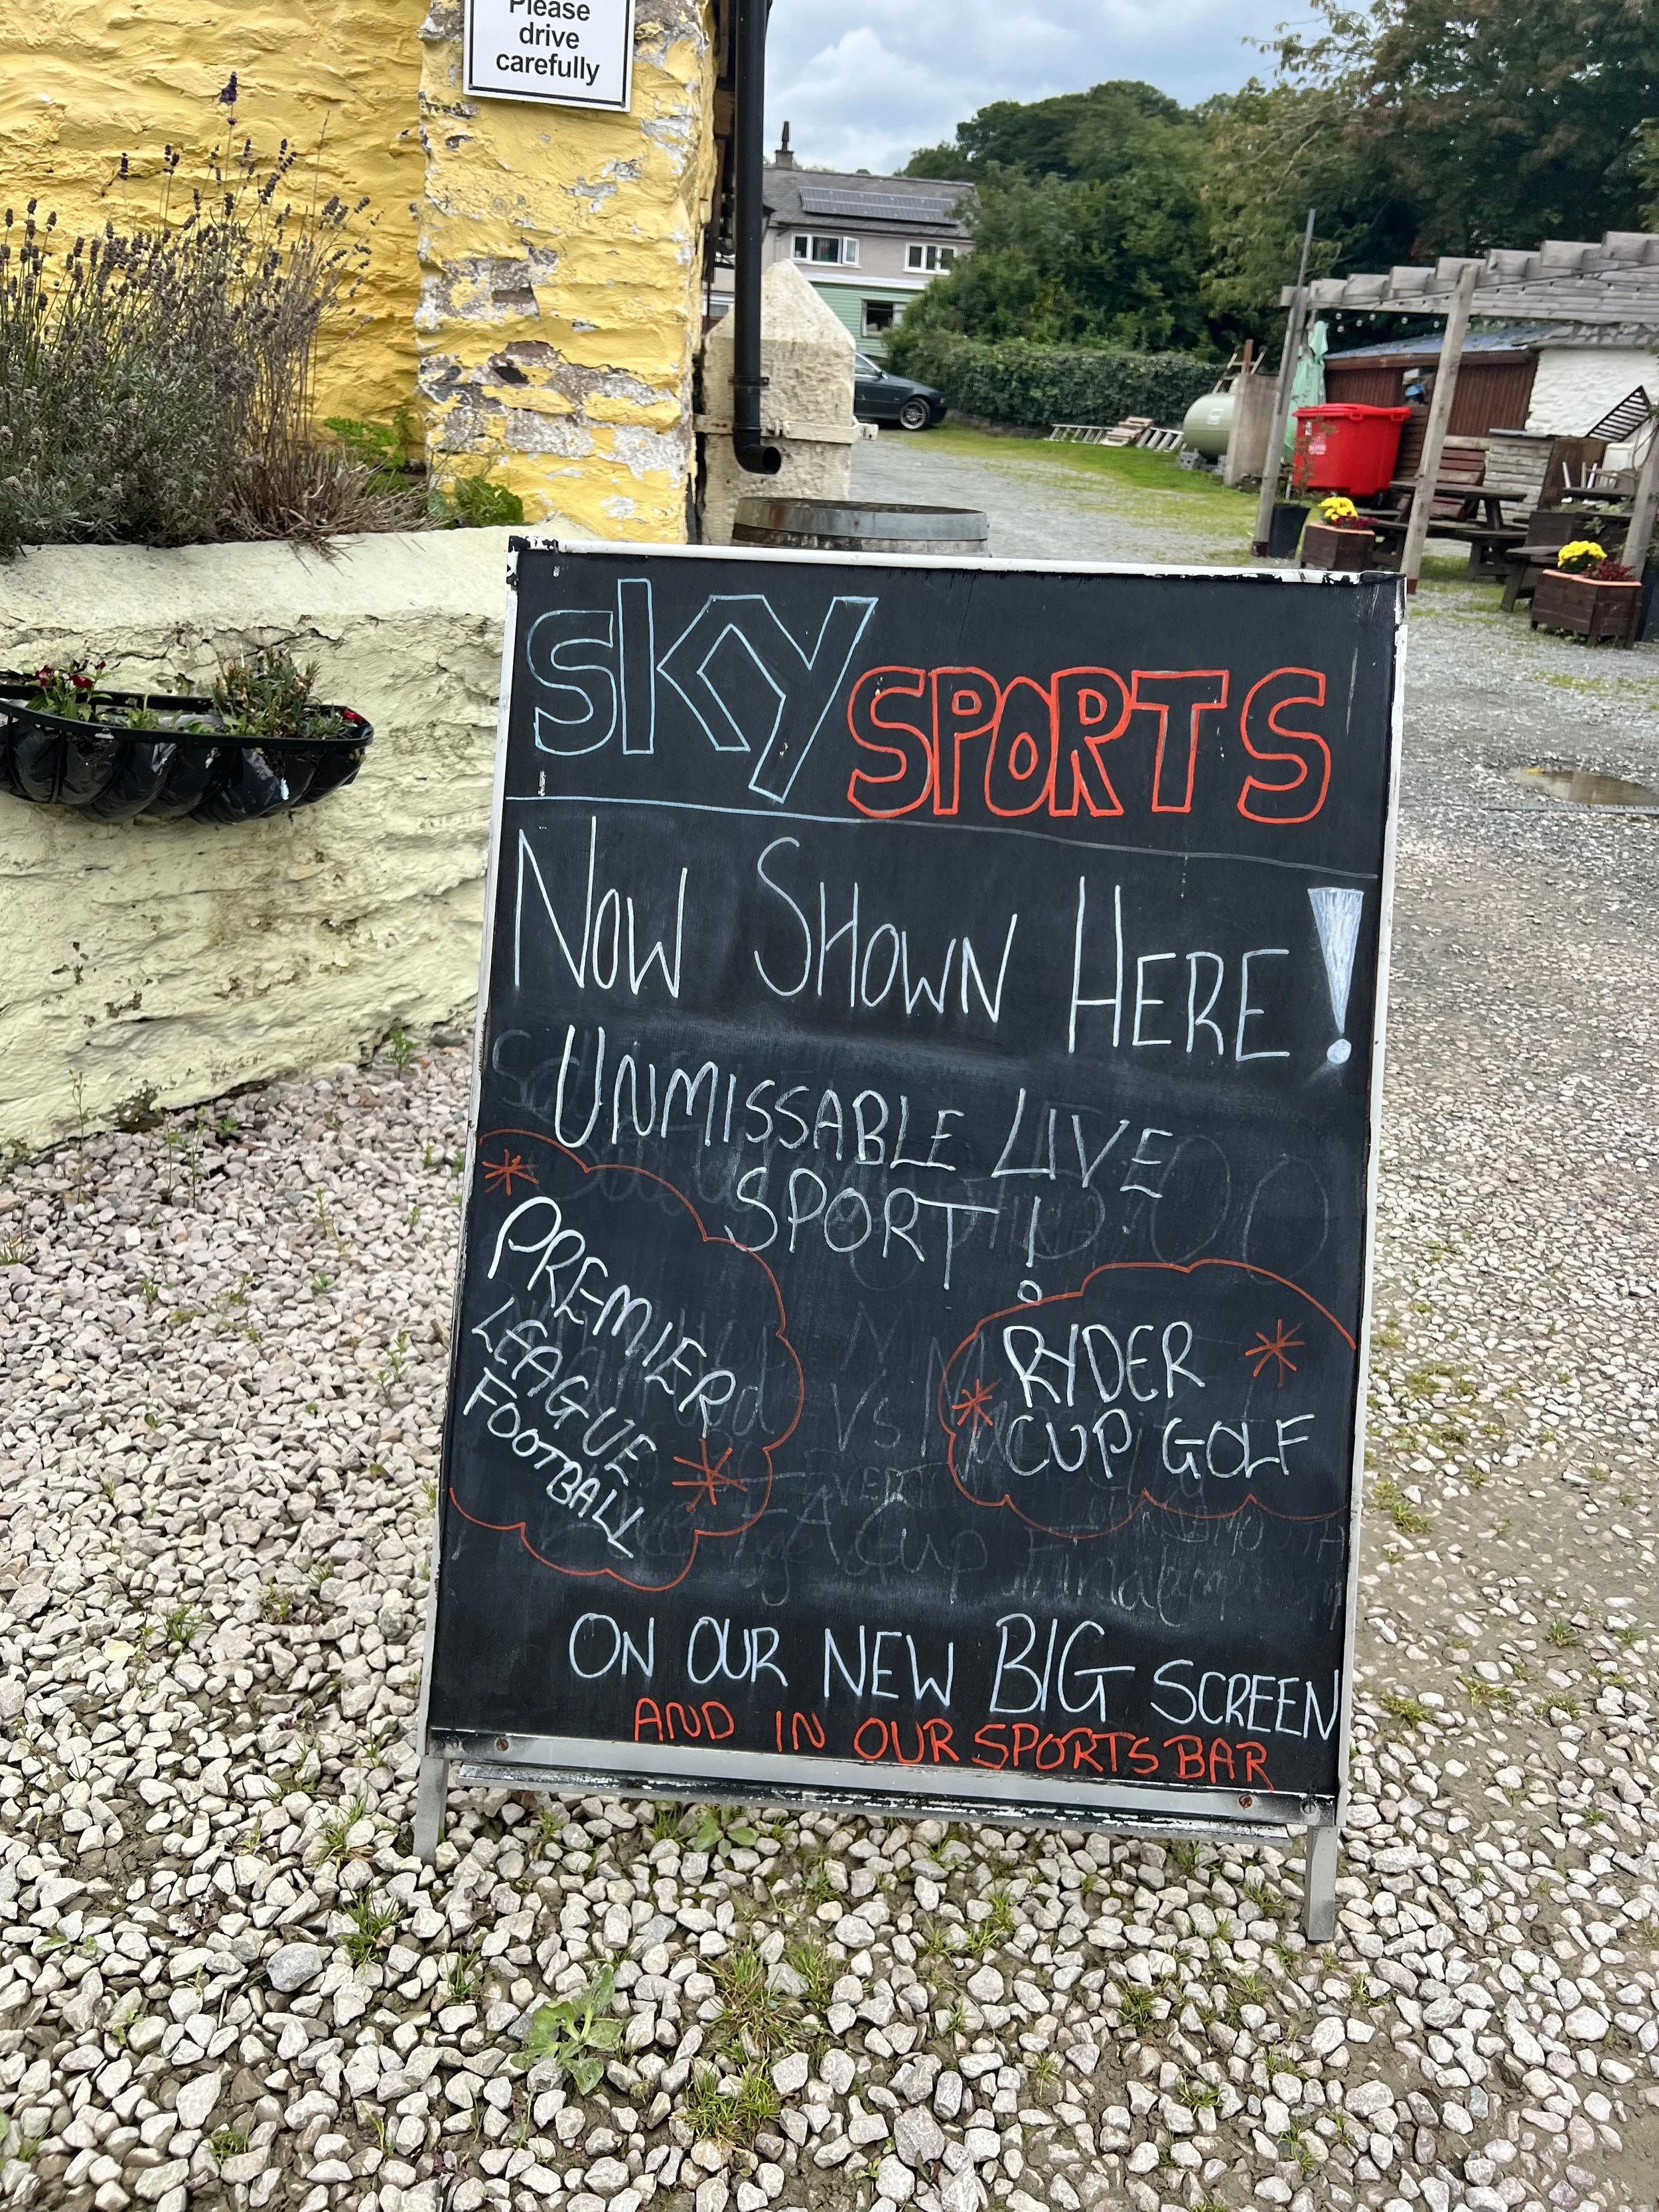 Please
drive
carefully
sky SPORTS
NOW SHOWN HERE!
UNMISSABLE LIVE
SPORT!
PREMIER
LEAGUE
FOOTBALL
RYDER
CUP GOLF
ON OUR NEW BIG SCREEN
AND IN OUR SPORTS BAR